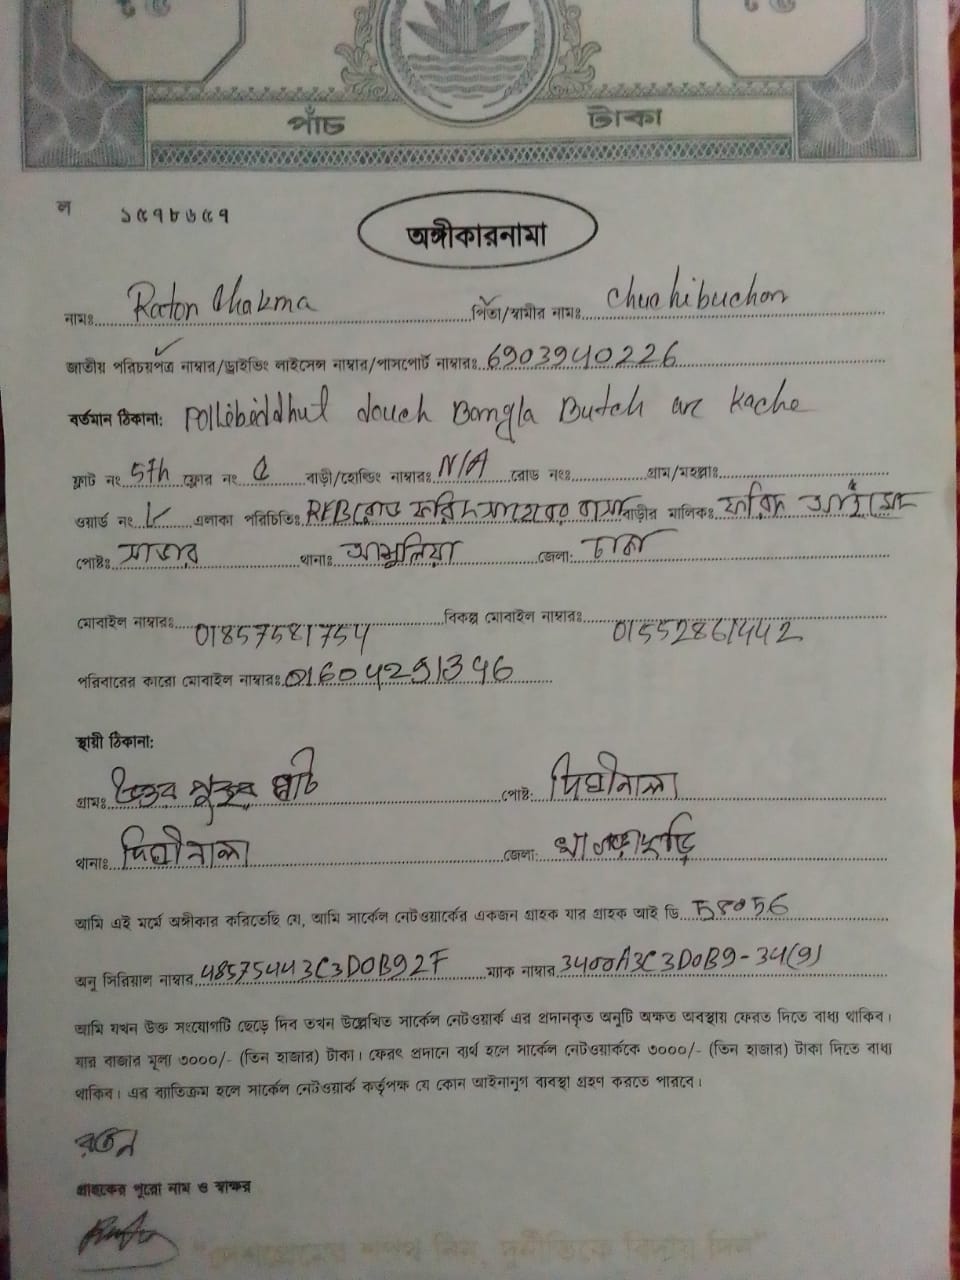 পাঁচ টাকা
ল ১৫৭৮৬৫৭
অঙ্গীকারনামা
নামঃ Raton Chakma পিতা/স্বামীর নামঃ Chuchibuchon
জাতীয় পরিচয়পত্র নাম্বার/ড্রাইভিং লাইসেন্স নাম্বার/পাসপোর্ট নাম্বারঃ 6903940226
বর্তমান ঠিকানা: douch Bangla Butch ar kache
ফ্লাট নং 5th ফ্লোর নং বাড়ী/হোল্ডিং নাম্বারঃ N/A রোড নংঃ গ্রাম/মহল্লাঃ
ওয়ার্ড নং এলাকা পরিচিতিঃ রোড ফরিদ সাহেবের বাসা বাড়ীর মালিকঃ ফরিদ
পোষ্টঃ সাভার থানাঃ আশুলিয়া জেলা: ঢাকা
মোবাইল নাম্বারঃ 01857581754 বিকল্প মোবাইল নাম্বারঃ 01552861442
পরিবারের কারো মোবাইল নাম্বারঃ 01604291346
স্থায়ী ঠিকানা:
গ্রামঃ উত্তর পুকুর ঘাট পোষ্ট: দিঘীনালা
থানাঃ দিঘীনালা জেলা: খাগড়াছড়ি
আমি এই মর্মে অঙ্গীকার করিতেছি যে, আমি সার্কেল নেটওয়ার্কের একজন গ্রাহক যার গ্রাহক আই ডি 58056
অনু সিরিয়াল নাম্বার 485754433C3D0B92F ম্যাক নাম্বার 3400A3C3D0B9-34(9)
আমি যখন উক্ত সংযোগটি ছেড়ে দিব তখন উল্লেখিত সার্কেল নেটওয়ার্ক এর প্রদানকৃত অনুটি অক্ষত অবস্থায় ফেরত দিতে বাধ্য থাকিব।
যার বাজার মূল্য ৩০০০/- (তিন হাজার) টাকা। ফেরৎ প্রদানে ব্যর্থ হলে সার্কেল নেটওয়ার্ককে ৩০০০/- (তিন হাজার) টাকা দিতে বাধ্য
থাকিব। এর ব্যতিক্রম হলে সার্কেল নেটওয়ার্ক কর্তৃপক্ষ যে কোন আইনানুগ ব্যবস্থা গ্রহণ করতে পারবে।
রতন
গ্রাহকের পুরো নাম ও স্বাক্ষর
"দেশপ্রেমের শপথ নিন, দুর্নীতিকে বিদায় দিন"